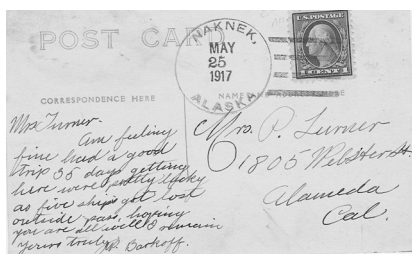 POST CARD
NAKNEK,
MAY
25
1917
ALASKA
U.S. POSTAGE
1 CENT 1
CORRESPONDENCE HERE
NAME AND ADDRESS HERE
Mrs Turner-
Am feeling
fine had a good
trip 35 days getting
here were pretty lucky
as five ships got lost
outside pass, hoping
you are all well & remain
yours truly
Barkoff.
Mrs. P. Turner
1805 Webster St.
Alameda
Cal.